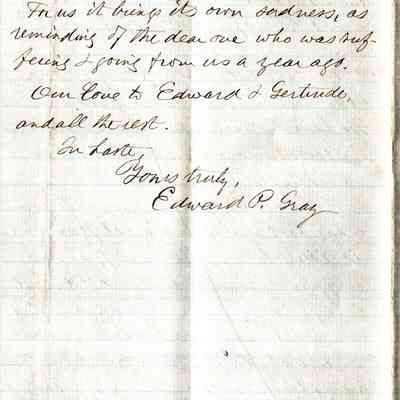 For us it brings its own sadness, as
reminding of the dear one who was suf-
fering & going from us a year ago.
Our love to Edward & Gertrude,
and all the rest.
In haste,
Yours truly,
Edward P. Gray